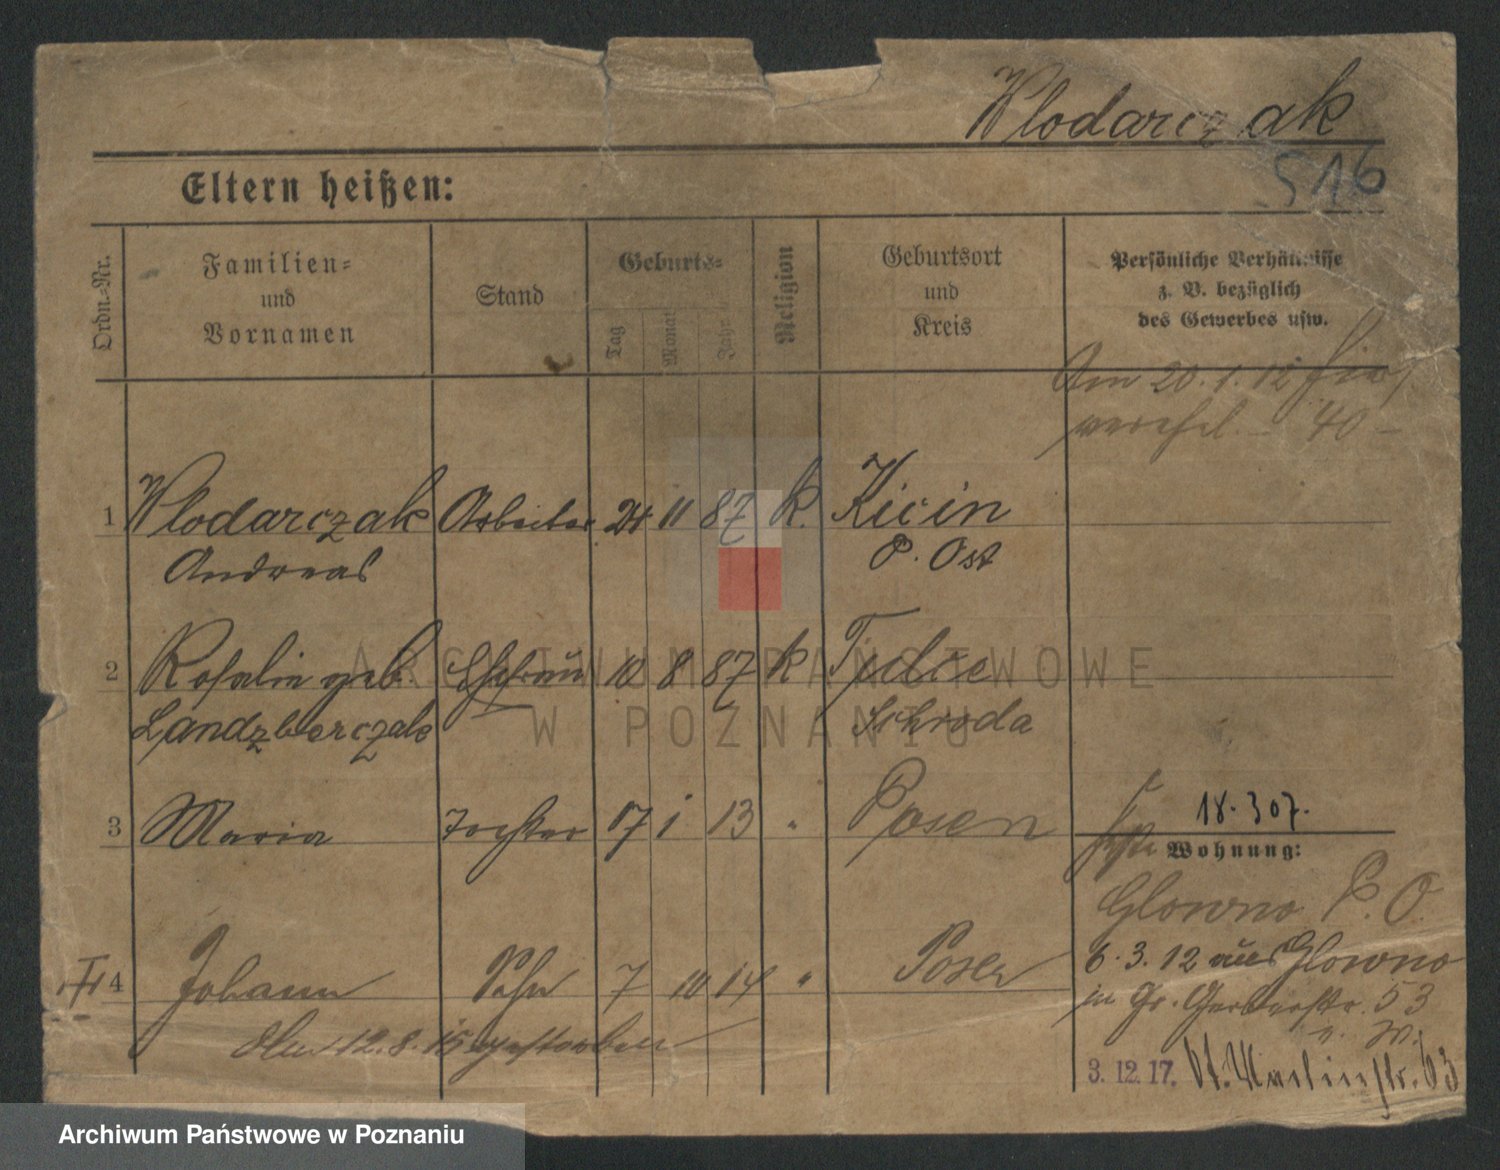 Wlodarczak
516
Eltern heißen:
Ordn.-Nr.
Familien-
und
Vornamen
Stand
Geburts-
Tag
Monat
Jahr
Religion
Geburtsort
und
Kreis
Persönliche Verhältnisse
z. B. bezüglich
des Gewerbes usw.
Am 20.1.12
verehel. 40
1 Wlodarczak Arbeiter 24 11 87 k. Kicin
Andreas P. Ost
2 Rosalie geb. Ehefrau 10 8 87 k
Landzberczak Schroda
3 Maria Tochter 17 1 13 " Posen
18.307.
Wohnung:
Glowno P. O.
4 Johann Sohn 7 10 14 " Posen
6.3.12 aus Glowno
in Gr. Gerberstr. 53
Am 12.8.15 gestorben
3. 12. 17. St. Martinstr. 63
ARCHIWUM PAŃSTWOWE
W POZNANIU
Archiwum Państwowe w Poznaniu